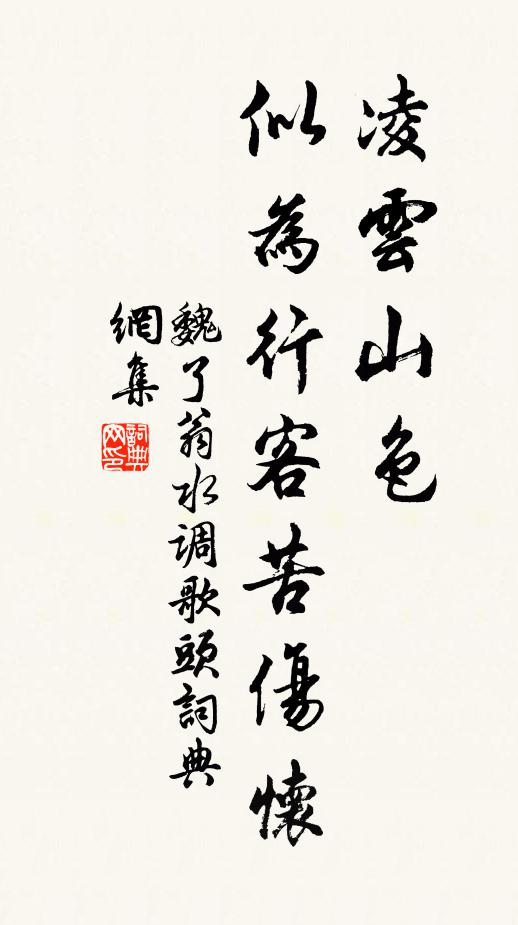 凌雲山色
似為行客苦傷懷
魏了翁水调歌頭詞典
網集
詞典
网印